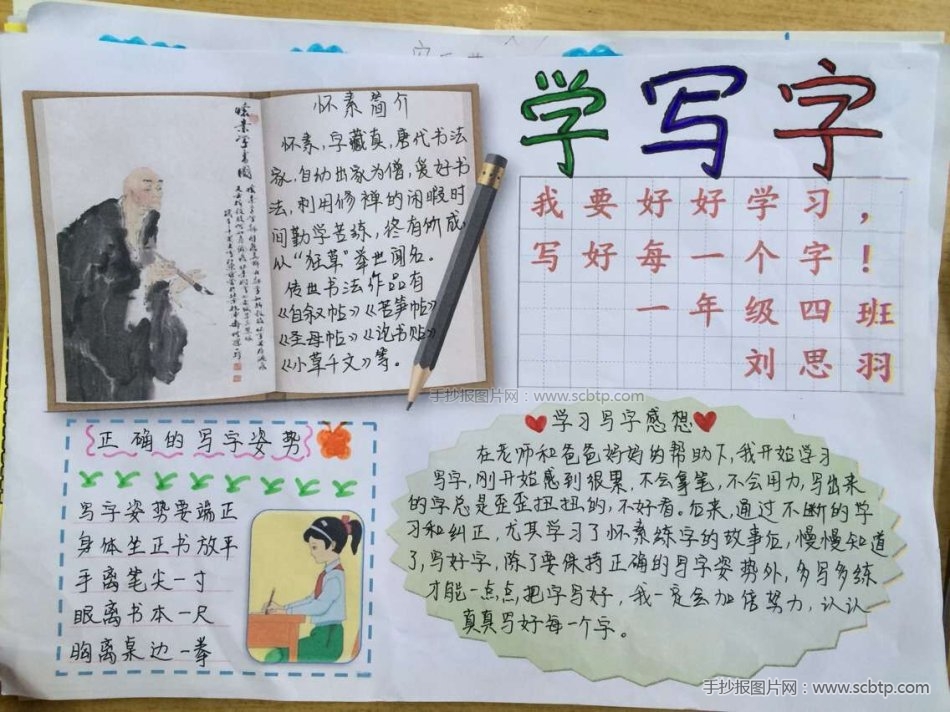 学写字
怀素简介
怀素，字藏真，唐代书法
家，自幼出家为僧，爱好书
法，利用修禅的闲暇时
间勤学苦练，终有所成，
以“狂草”举世闻名。
传世书法作品有
《自叙帖》《苦笋帖》
《圣母帖》《论书帖》
《小草千文》等。
我要好好学习，
写好每一个字！
一年级四班
刘思羽
手抄报图片网：www.scbtp.com
正确的写字姿势
写字姿势要端正
身体坐正书放平
手离笔尖一寸
眼离书本一尺
胸离桌边一拳
学习写字感想
在老师和爸爸妈妈的帮助下，我开始学习
写字，刚开始感到很累，不会拿笔，不会用力，写出来
的字总是歪歪扭扭的，不好看。后来，通过不断的学
习和纠正，尤其学习了怀素练字的故事后，慢慢知道
了，写好字，除了要保持正确的写字姿势外，多写多练
才能一点点把字写好，我一定会加倍努力，认认
真真写好每一个字。
手抄报图片网：www.scbtp.com